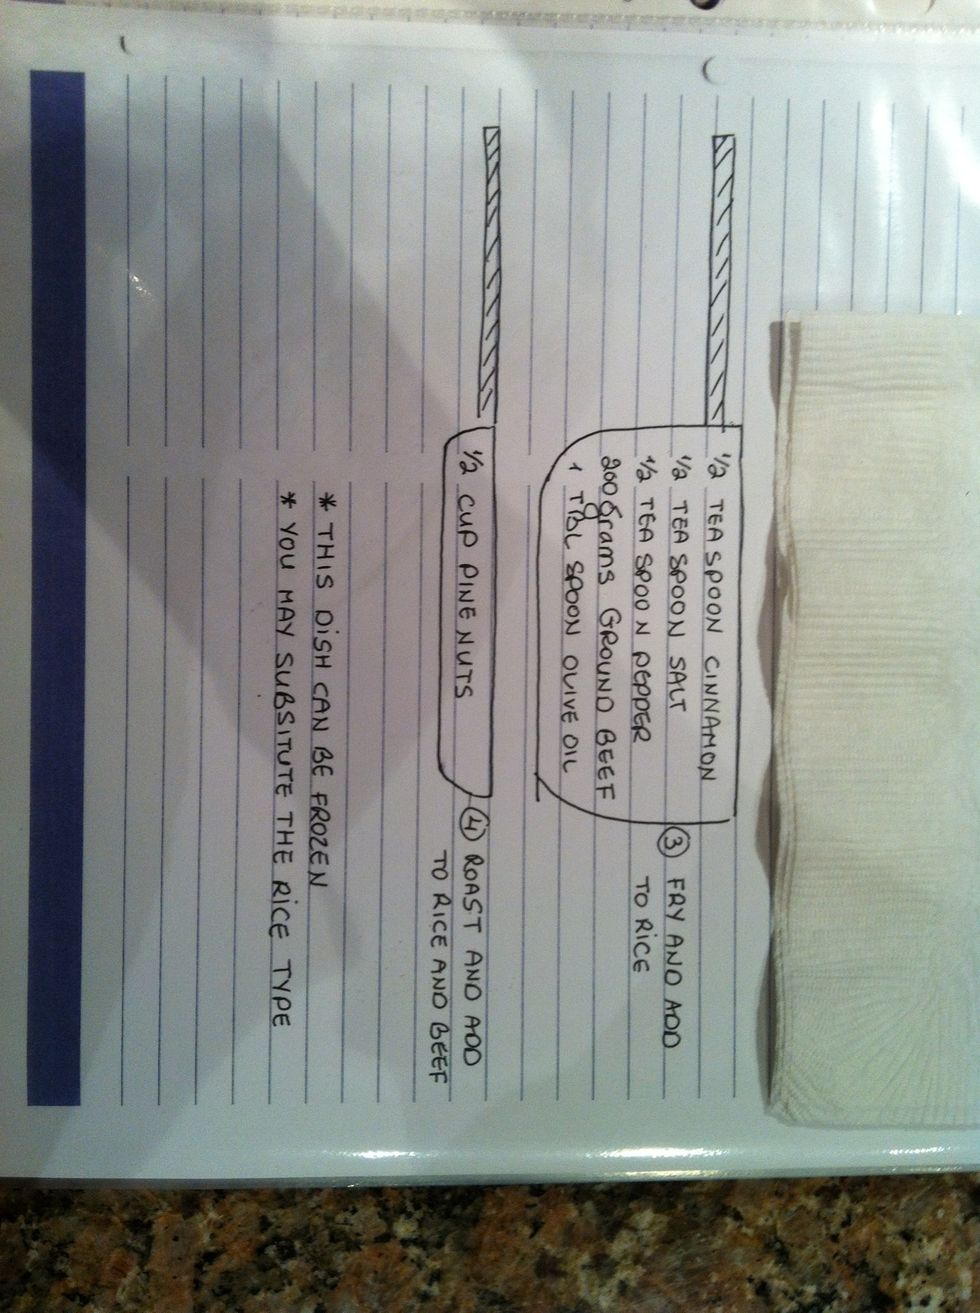 1/2 TEASPOON CINNAMON
1/2 TEASPOON SALT
1/2 TEASPOON PEPPER
200 grams GROUND BEEF
1 TBL SPOON OLIVE OIL
3 FRY AND ADD
TO RICE
1/2 CUP PINE NUTS
4 ROAST AND ADD
TO RICE AND BEEF
* THIS DISH CAN BE FROZEN
* YOU MAY SUBSITUTE THE RICE TYPE